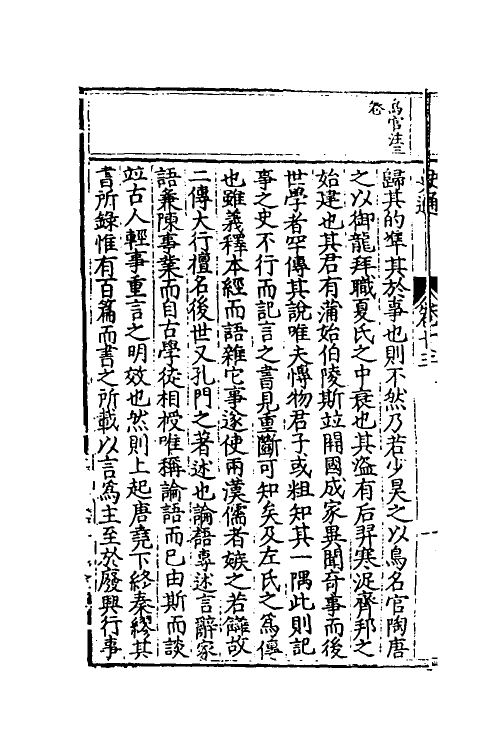 鳥官注三
卷
史通
卷十三
歸其的準其於事也則不然乃若少昊之以鳥名官陶唐
之以御龍拜職夏氏之中衰也其盜有后羿寒浞齊邦之
始建也其君有蒲始伯陵斯竝開國成家異聞奇事而後
世學者罕傳其說唯夫愽物君子或粗知其一隅此則記
事之史不行而記言之書見重斷可知矣及左氏之爲傳
也雖義釋本經而語雜它事遂使兩漢儒者嫉之若讎故
二傳大行擅名後世又孔門之著述也論語專述言辭家
語兼陳事業而自古學徒相授唯稱論語而已由斯而談
竝古人輕事重言之明效也然則上起唐堯下終秦繆其
書所錄惟有百篇而書之所載以言爲主至於廢興行事